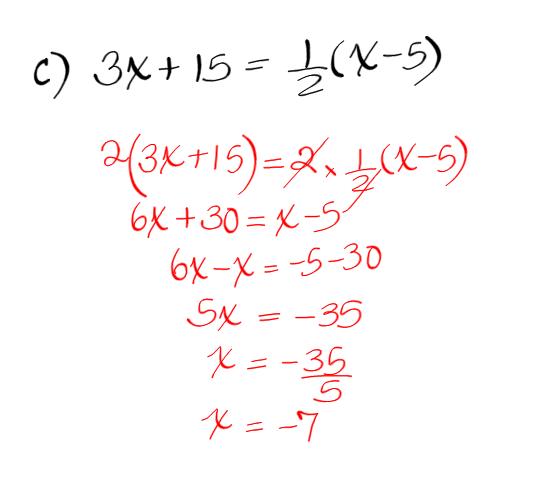 c) 3x + 15 = 1/2 (x - 5)
2(3x + 15) = 2 × 1/2 (x - 5)
6x + 30 = x - 5
6x - x = -5 - 30
5x = -35
x = -35/5
x = -7